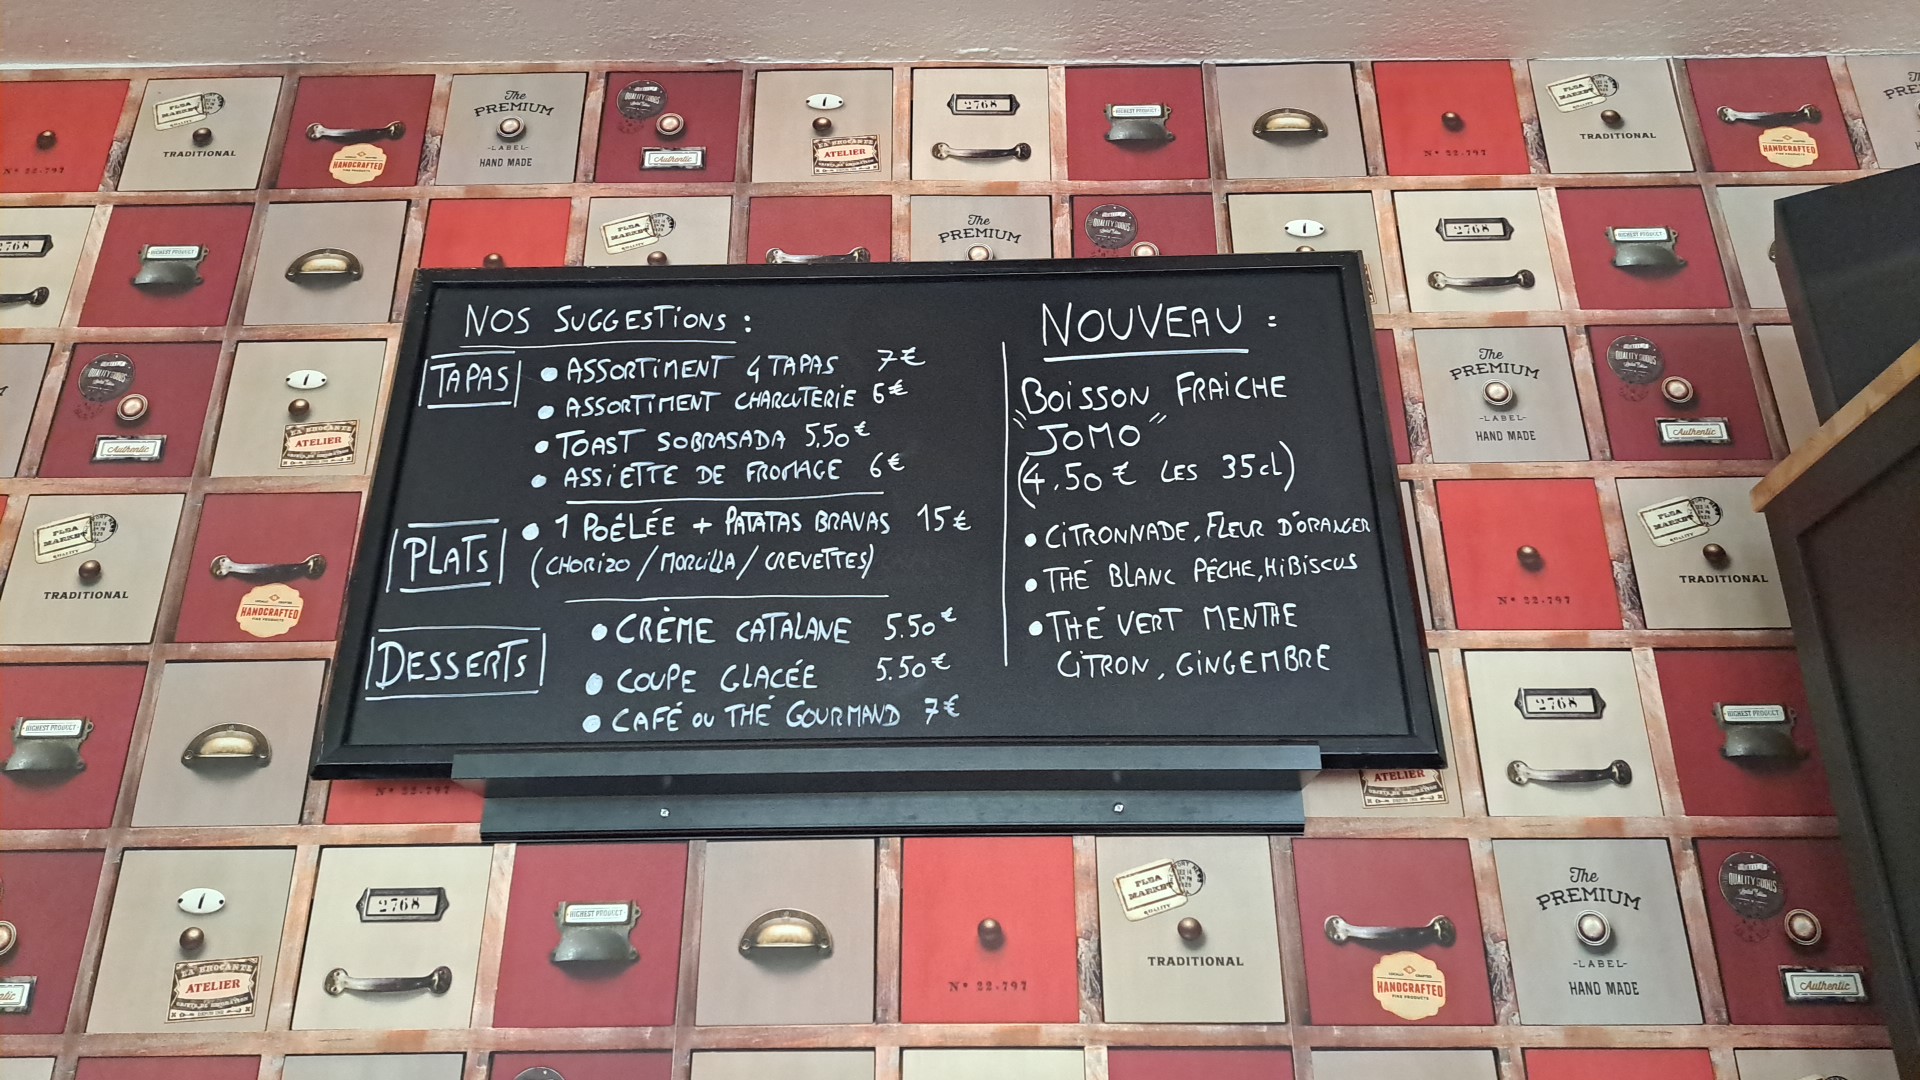 NOS SUGGESTIONS :
TAPAS
• ASSORTIMENT 4 TAPAS 7€
• ASSORTIMENT CHARCUTERIE 6€
• TOAST SOBRASADA 5.50€
• ASSIETTE DE FROMAGE 6€
PLATS
• 1 POÊLÉE + PATATAS BRAVAS 15€
(CHORIZO / MORCILLA / CREVETTES)
DESSERTS
• CRÈME CATALANE 5.50€
• COUPE GLACÉE 5.50€
• CAFÉ OU THÉ GOURMAND 7€
NOUVEAU :
BOISSON FRAICHE
"JOMO"
(4.50€ LES 35cl)
• CITRONNADE, FLEUR D'ORANGER
• THÉ BLANC PÊCHE, HIBISCUS
• THÉ VERT MENTHE
CITRON, GINGEMBRE
FLEA MARKET
QUALITY
TRADITIONAL
HANDCRAFTED
The
PREMIUM
-LABEL-
HAND MADE
QUALITY GOODS
Authentic
1
ATELIER
2768
HIGHEST PRODUCT
N° 22.797